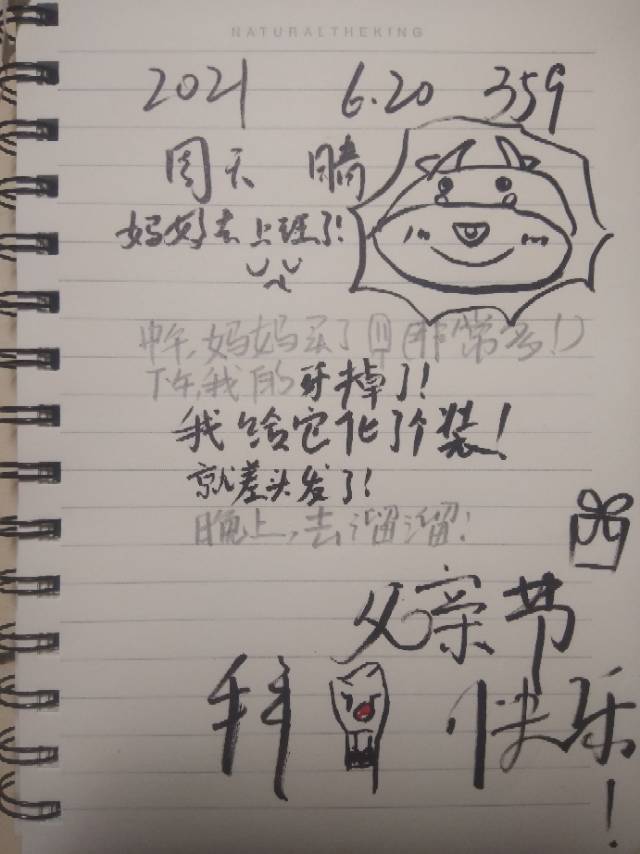 NATURALTHEKING
2021 6.20 359
周天 晴
妈妈去上班了!
中午,妈妈买了(非常多!)
下午,我的牙掉了!
我给它化了个装!
就差头发了!
晚上,去溜溜!
父亲节
快乐!
拜